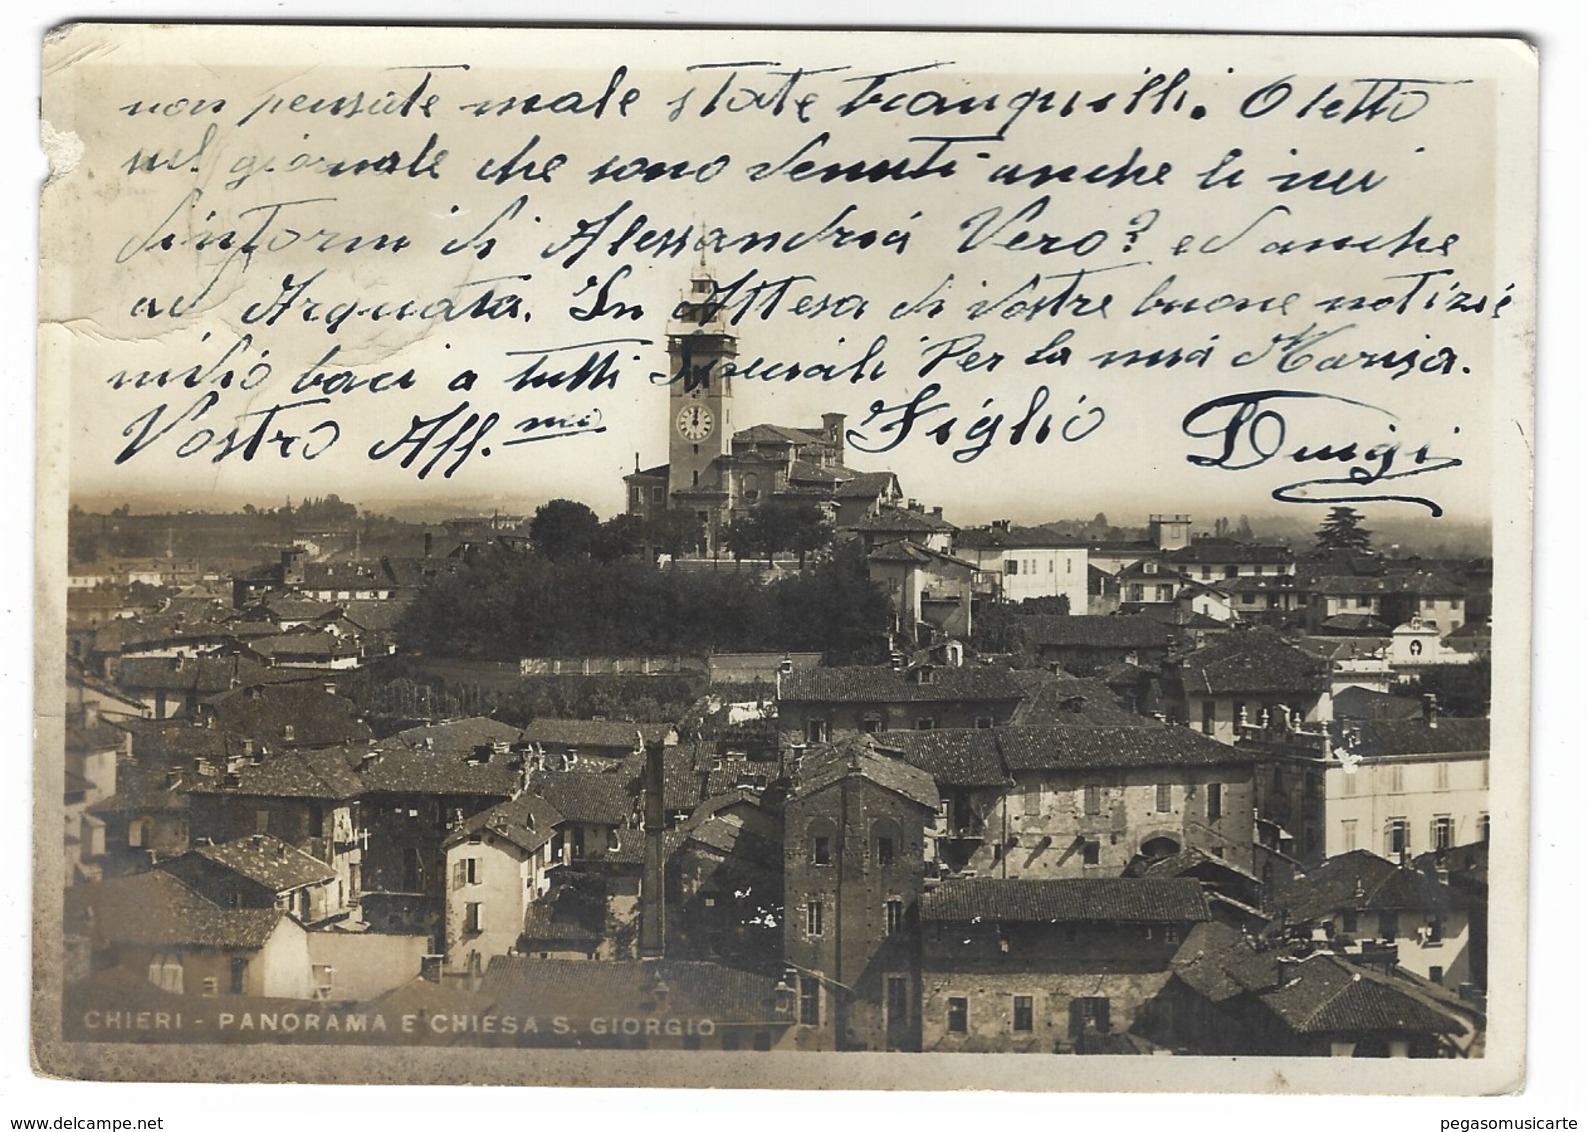 non pensate male state tranquilli. O letto
nel giornale che sono venuti anche li nei
dintorni di Alessandria Vero? ed anche
ad Arquata. In Attesa di vostre buone notizie
invio baci a tutti Speciali Per la mia Marisa.
Vostro Aff.mo Figlio Luigi
CHIERI - PANORAMA E CHIESA S. GIORGIO
delcampe.net
pegasomusicarte